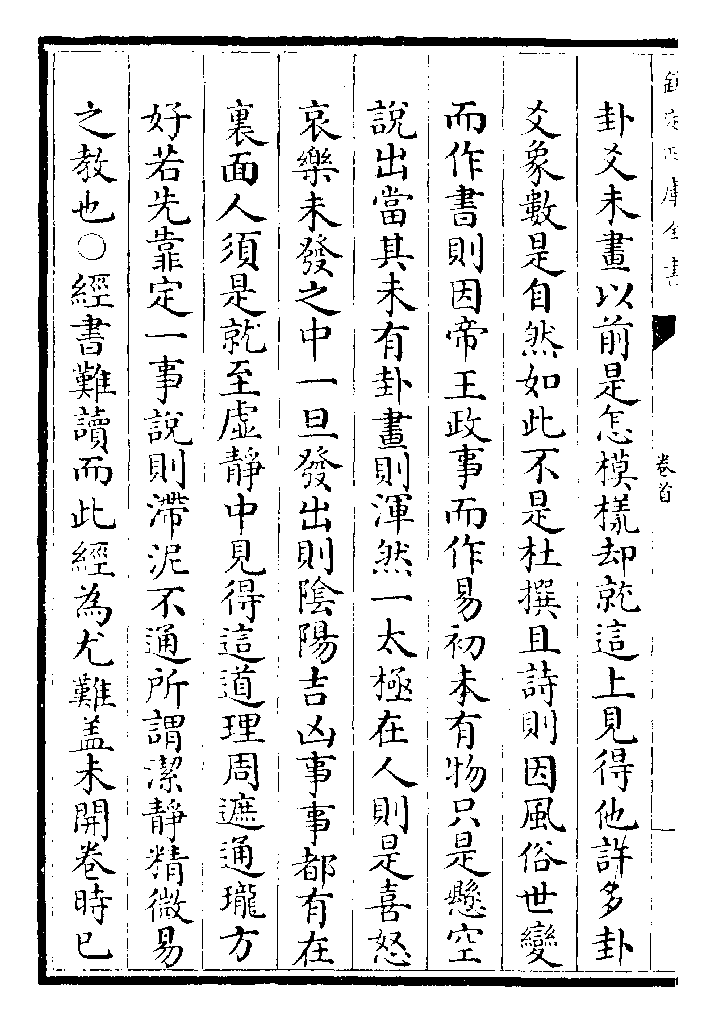 欽定四庫全書
卷首
卦爻未畫以前是怎模樣却就這上見得他許多卦
爻象數是自然如此不是杜撰且詩則因風俗世變
而作書則因帝王政事而作易初未有物只是懸空
說出當其未有卦畫則渾然一太極在人則是喜怒
哀樂未發之中一旦發出則陰陽吉凶事事都有在
裏面人須是就至虛靜中見得這道理周遮通瓏方
好若先靠定一事說則滯泥不通所謂潔靜精微易
之教也○經書難讀而此經為尤難盖未開卷時已